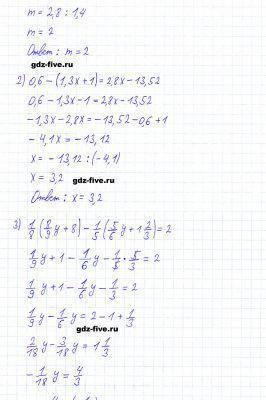 m = 2,8 : 1,4
m = 2
Ответ: m = 2
gdz-five.ru
2) 0,6 - (1,3x + 1) = 2,8x - 13,52
0,6 - 1,3x - 1 = 2,8x - 13,52
-1,3x - 2,8x = -13,52 - 0,6 + 1
-4,1x = -13,12
x = -13,12 : (-4,1)
gdz-five.ru
x = 3,2
Ответ: x = 3,2
3) 1/8 (8/9 y + 8) - 1/5 (5/6 y + 1 2/3) = 2
1/9 y + 1 - 1/6 y - 1/5 · 5/3 = 2
1/9 y + 1 - 1/6 y - 1/3 = 2
1/9 y - 1/6 y = 2 - 1 + 1/3
gdz-five.ru
2/18 y - 3/18 y = 1 1/3
-1/18 y = 4/3